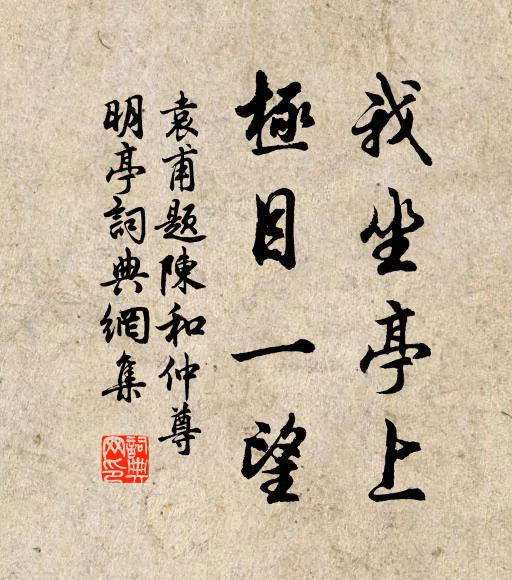 我坐亭上
極目一望
袁甫題陳和仲尊
明亭詞典網集
詞典网印